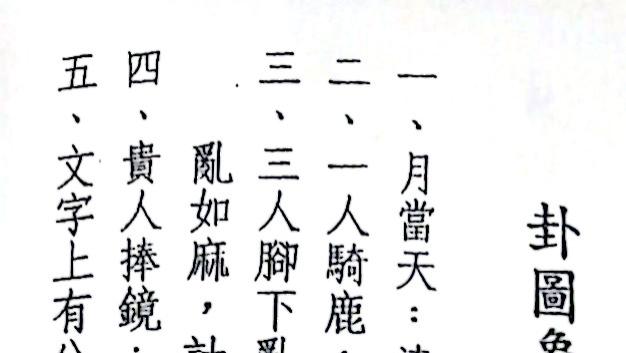 卦圖象
一、月當天：
二、一人騎鹿：
三、三人腳下亂
亂如麻，
四、貴人捧鏡：
五、文字上有公